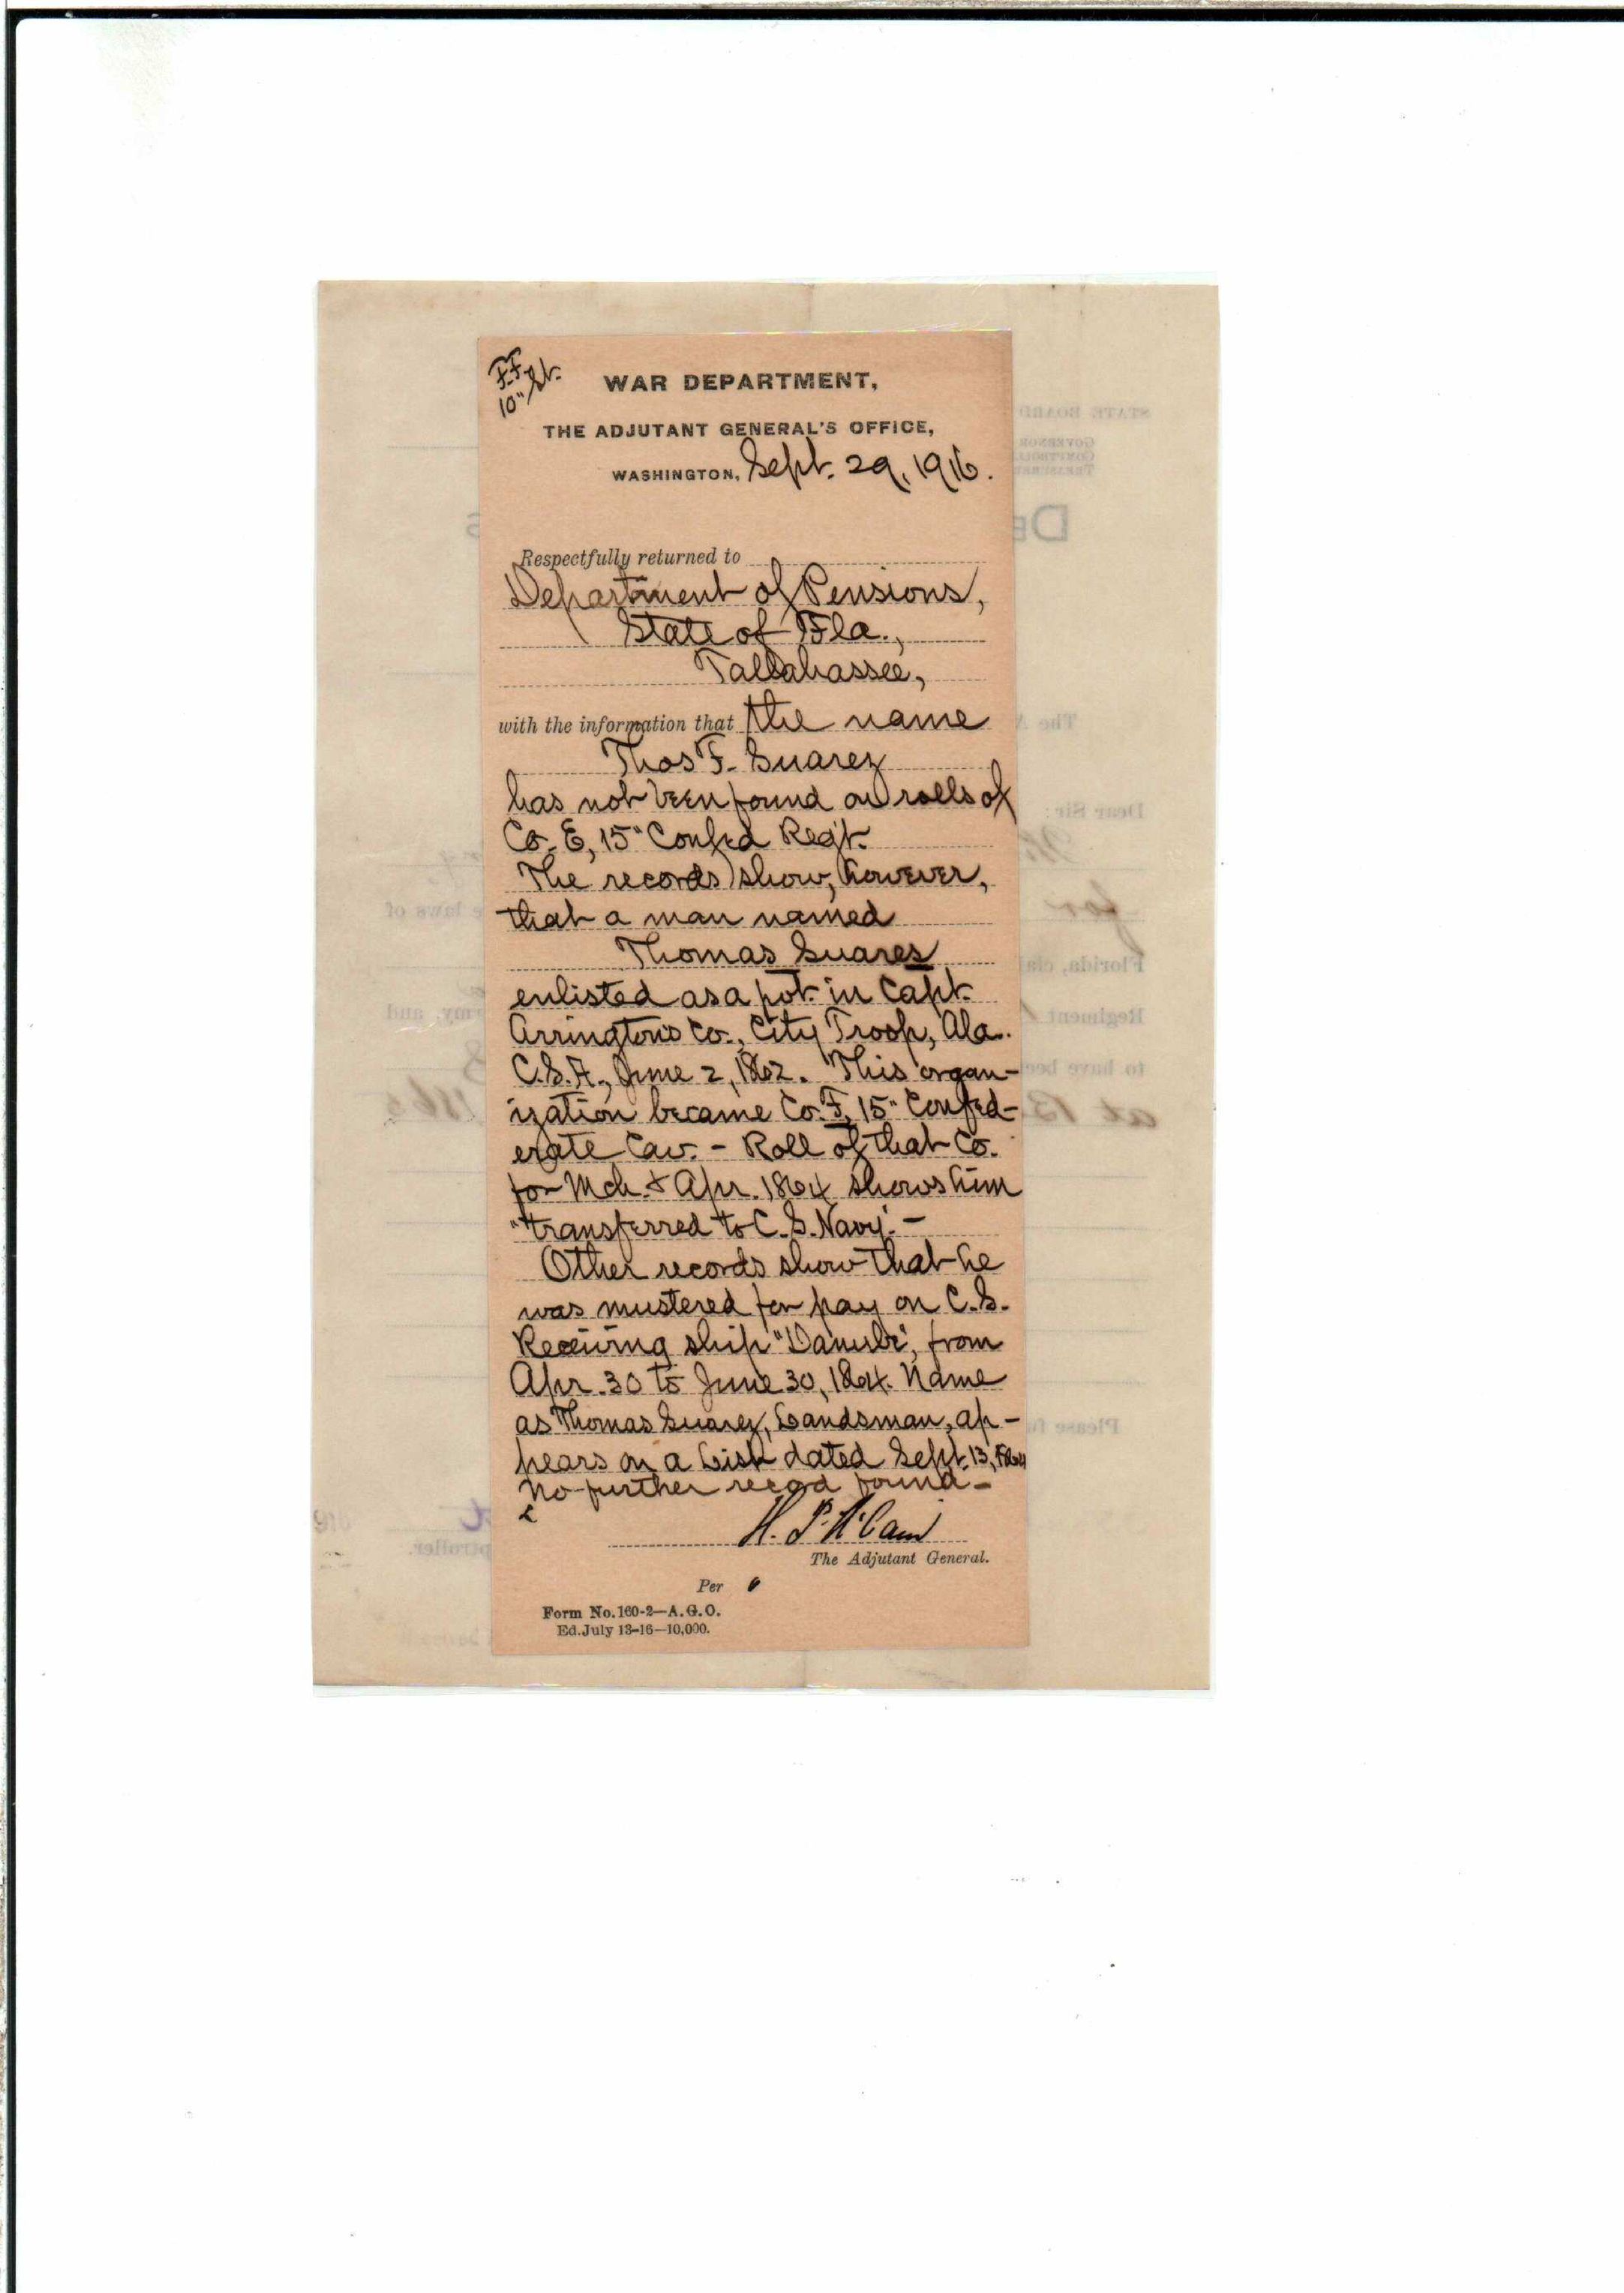 F.F.
10" St.
WAR DEPARTMENT,
THE ADJUTANT GENERAL'S OFFICE,
WASHINGTON, Sept. 29, 1916.
Respectfully returned to
Department of Pensions,
State of Fla.,
Tallahassee,
with the information that the name
Thos F. Suarez
has not been found on rolls of
Co. E, 15" Confed Reg't.
The records show, however,
that a man named
Thomas Suares
enlisted as a pvt. in Capt.
Arrington's Co., City Troop, Ala.
C.S.A., June 2, 1862. This organ-
ization became Co. F, 15" Confed-
erate Cav. - Roll of that Co.
for Mch. & Apr. 1864 shows him
"transferred to C.S. Navy". -
Other records show that he
was mustered for pay on C.S.
Receiving ship "Danube", from
Apr. 30 to June 30, 1864. Name
as Thomas Suarez, Landsman, ap-
pears on a List dated Sept. 13, 1864
No further record found -
H. P. McCain
The Adjutant General.
Per
Form No. 160-2—A.G.O.
Ed. July 13-16—10,000.
STATE BOARD
GOVERNOR
DE
The A
Dear Sir:
for
e laws of
Florida, cla
Regiment
my, and
to have bee
at B
1865
Please fu
ptroller.